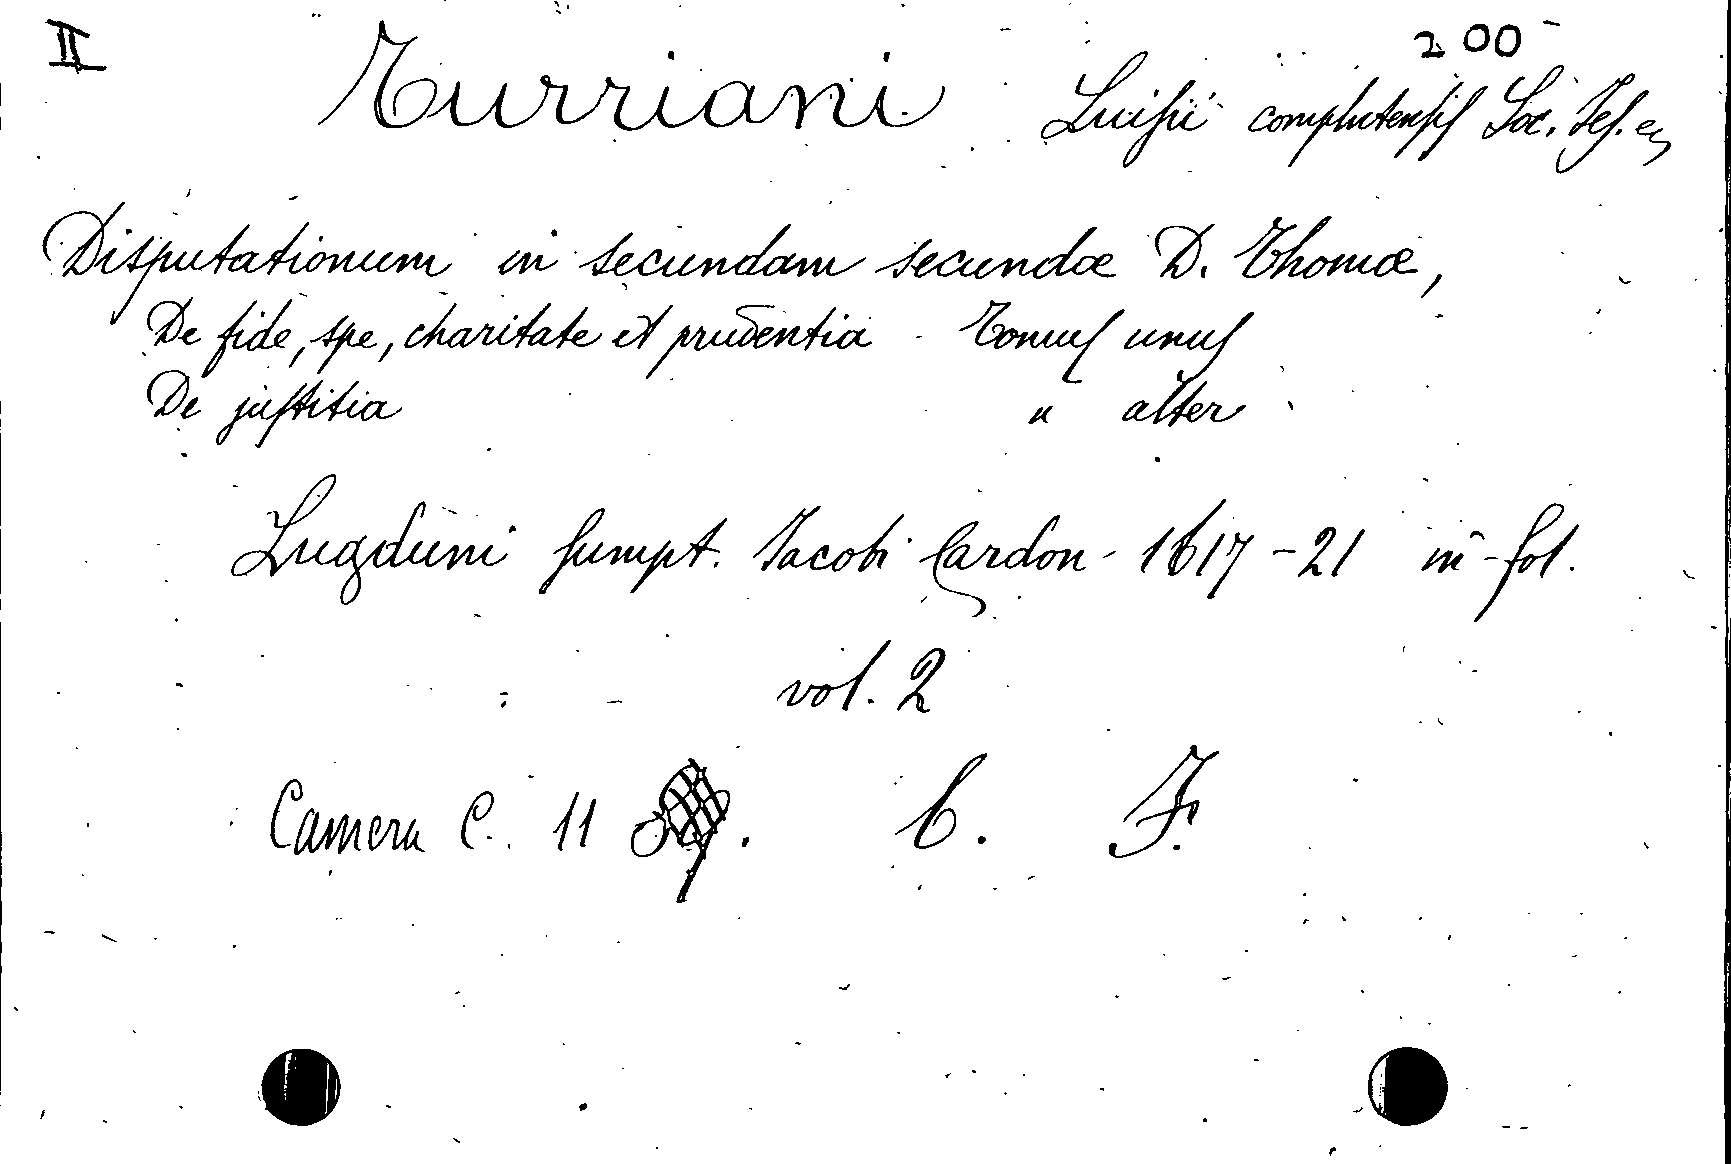 II 200
Turriani Luisii complutensis Soc. Jes. ex
Disputationum in secundam secundæ D. Thomæ,
De fide, spe, charitate et prudentia Tomus unus
De justitia " alter
Lugduni sumpt. Jacobi Cardon 1617-21 in-fol.
vol. 2
Camera C. 11 C. F.